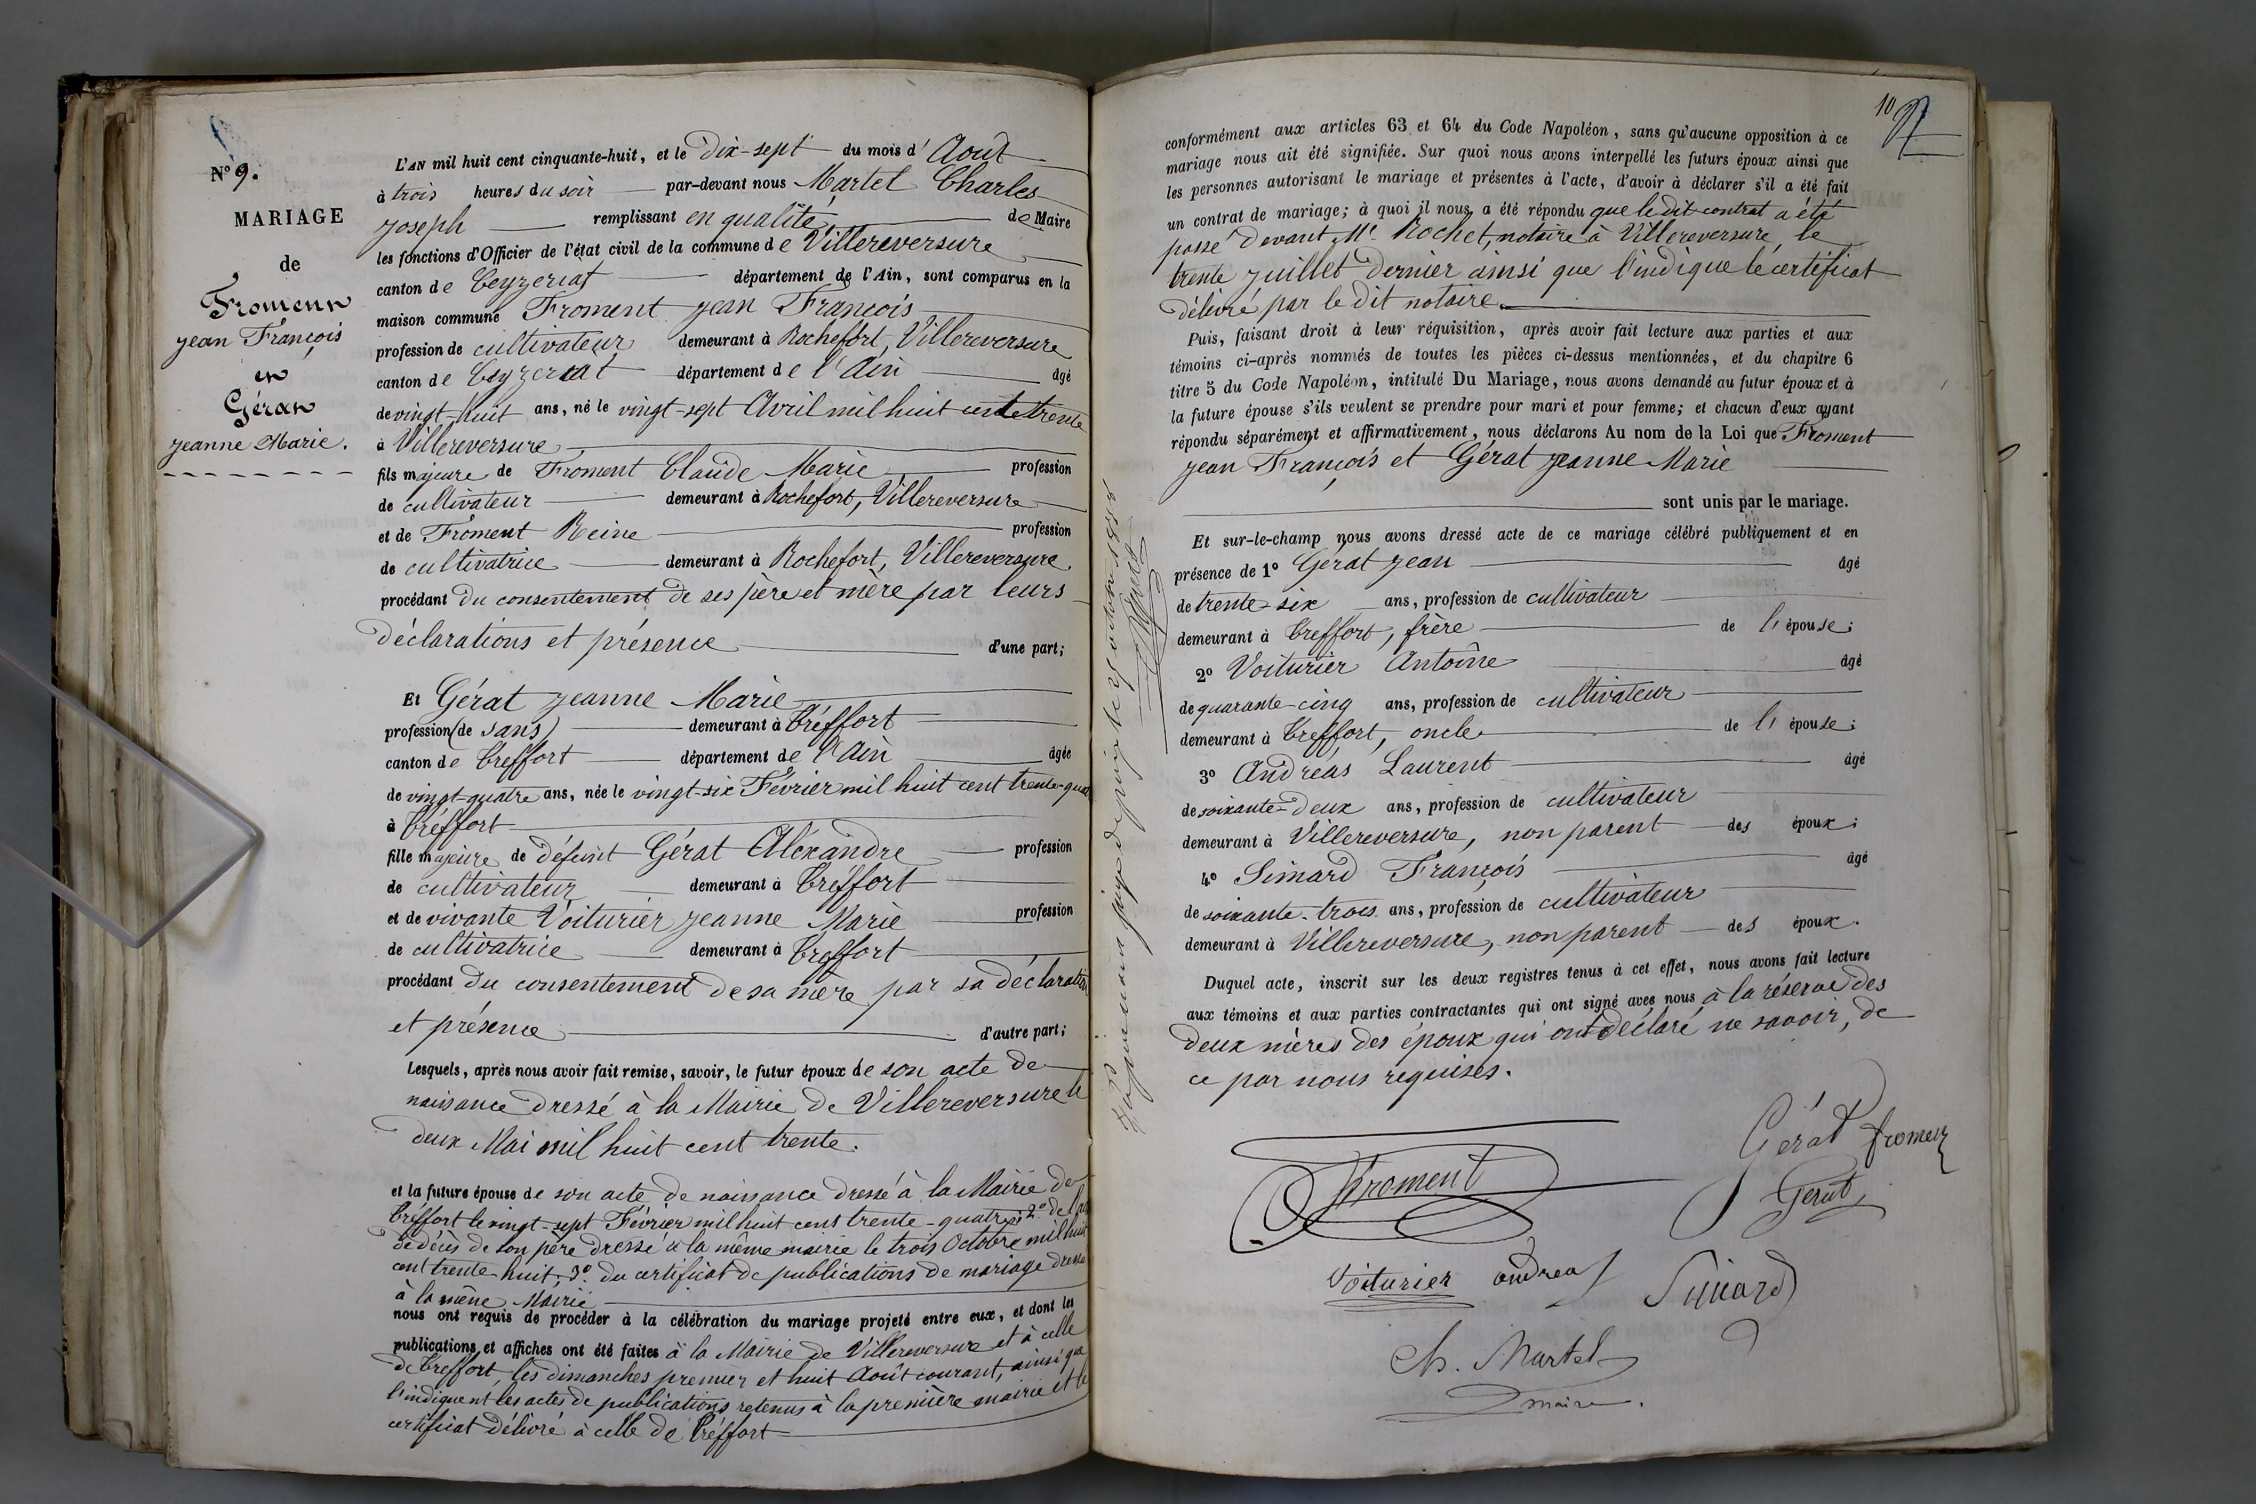 N° 9.
MARIAGE
de
Froment
Jean François
et
Gérat
Jeanne Marie.
L'AN mil huit cent cinquante-huit, et le Dix-sept du mois d' Aout
à trois heures du soir par-devant nous Martel Charles
Joseph remplissant en qualité de Maire
les fonctions d'Officier de l'état civil de la commune de Villereversure
canton de Ceyzeriat département de l'Ain, sont comparus en la
maison commune Froment Jean François
profession de cultivateur demeurant à Rochefort, Villereversure
canton de Ceyzeriat département de l'Ain âgé
de vingt-huit ans, né le vingt-sept Avril mil huit cent trente
à Villereversure
fils majeure de Froment Claude Marie profession
de cultivateur demeurant à Rochefort, Villereversure
et de Froment Reine profession
de cultivatrice demeurant à Rochefort, Villereversure
procédant du consentement de ses père et mère par leurs
déclarations et présence d'une part;
Et Gérat Jeanne Marie
profession (de sans) demeurant à Tréffort
canton de Treffort département de l'Ain âgée
de vingt-quatre ans, née le vingt-six Février mil huit cent trente-quat
à Tréffort
fille majeure de défunt Gérat Aléxandre profession
de cultivateur demeurant à Tréffort
et de vivante Voiturier Jeanne Marie profession
de cultivatrice demeurant à Treffort
procédant du consentement de sa mère par sa déclaration
et présence d'autre part;
Lesquels, après nous avoir fait remise, savoir, le futur époux de son acte de
naissance dressé à la Mairie de Villereversure le
deux Mai mil huit cent trente.
et la future épouse de son acte de naissance dressé à la Mairie de
Tréffort le vingt-sept Février mil huit cent trente-quatre; 2° de l'acte
de décès de son père dressé à la même mairie le trois Octobre mil huit
cent trente huit; 3° du certificat de publications de mariage dressé
à la même Mairie
nous ont requis de procéder à la célébration du mariage projeté entre eux, et dont les
publications et affiches ont été faites à la Mairie de Villereversure et à celle
de Treffort, les dimanches premier et huit Août courant, ainsi que
l'indiquent les actes de publications retenus à la première mairie et le
certificat délivré à celle de Tréffort
10
conformément aux articles 63 et 64 du Code Napoléon, sans qu'aucune opposition à ce
mariage nous ait été signifiée. Sur quoi nous avons interpellé les futurs époux ainsi que
les personnes autorisant le mariage et présentes à l'acte, d'avoir à déclarer s'il a été fait
un contrat de mariage; à quoi il nous a été répondu que le dit contrat a été
passé devant Me Rochet, notaire à Villereversure, le
trente Juillet dernier ainsi que l'indique le certificat
délivré par le dit notaire.
Puis, faisant droit à leur réquisition, après avoir fait lecture aux parties et aux
témoins ci-après nommés de toutes les pièces ci-dessus mentionnées, et du chapitre 6
titre 5 du Code Napoléon, intitulé Du Mariage, nous avons demandé au futur époux et à
la future épouse s'ils veulent se prendre pour mari et pour femme; et chacun d'eux ayant
répondu séparément et affirmativement, nous déclarons Au nom de la Loi que Froment
Jean François et Gérat Jeanne Marie
sont unis par le mariage.
Et sur-le-champ nous avons dressé acte de ce mariage célébré publiquement et en
présence de 1° Gérat Jean âgé
de trente-six ans, profession de cultivateur
demeurant à Treffort, frère de l'épouse;
2° Voiturier Antoine âgé
de quarante-cinq ans, profession de cultivateur
demeurant à Treffort, oncle de l'épouse;
3° Andréas Laurent âgé
de soixante-deux ans, profession de cultivateur
demeurant à Villereversure, non parent des époux;
4° Simard François âgé
de soixante-trois ans, profession de cultivateur
demeurant à Villereversure, non parent des époux.
Duquel acte, inscrit sur les deux registres tenus à cet effet, nous avons fait lecture
aux témoins et aux parties contractantes qui ont signé avec nous, à la réserve des
deux mères des époux qui ont déclaré ne savoir, de
ce par nous requises.
Gérat froment
Froment
Gerat
Voiturier andreas Simard
Ch. Martel
maire.